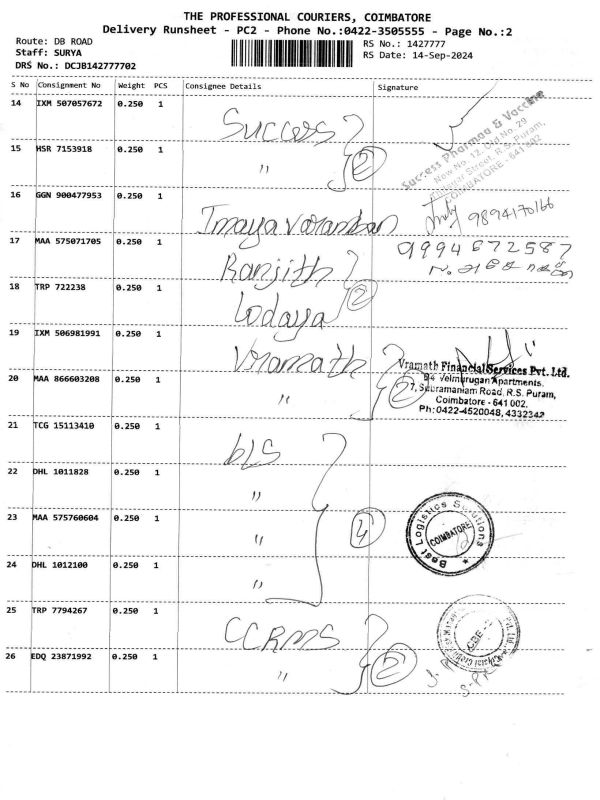 THE PROFESSIONAL COURIERS, COIMBATORE
Delivery Runsheet - PC2 - Phone No.:0422-3505555 - Page No.:2
Route: DB ROAD
RS No.: 1427777
Staff: SURYA
RS Date: 14-Sep-2024
DRS No.: DCJB142777702
S No Consignment No Weight PCS Consignee Details Signature
14 IXM 507057672 0.250 1 Success
Success Pharma & Vaccine
New No. 12, Old No. 29
Street, R.S. Puram,
COIMBATORE - 641 002
15 HSR 7153918 0.250 1 " 2
16 GGN 900477953 0.250 1 Imayavaramban 9894170166
17 MAA 575071705 0.250 1 Ranjith 9994672587
18 TRP 722238 0.250 1 Lodaya 2
19 IXM 506981991 0.250 1 Vramath
Vramath Financial Services Pvt. Ltd.
9/4 Velmurugan Apartments,
7, Subramaniam Road, R.S. Puram,
Coimbatore - 641 002.
Ph: 0422-4520048, 4332342
20 MAA 866603208 0.250 1 " 2
21 TCG 15113410 0.250 1 bLS
22 DHL 1011828 0.250 1 "
23 MAA 575760604 0.250 1 " 4
Best Logistics Solutions
COIMBATORE
24 DHL 1012100 0.250 1 "
25 TRP 7794267 0.250 1 CCRMS
26 EDQ 23871992 0.250 1 " 2